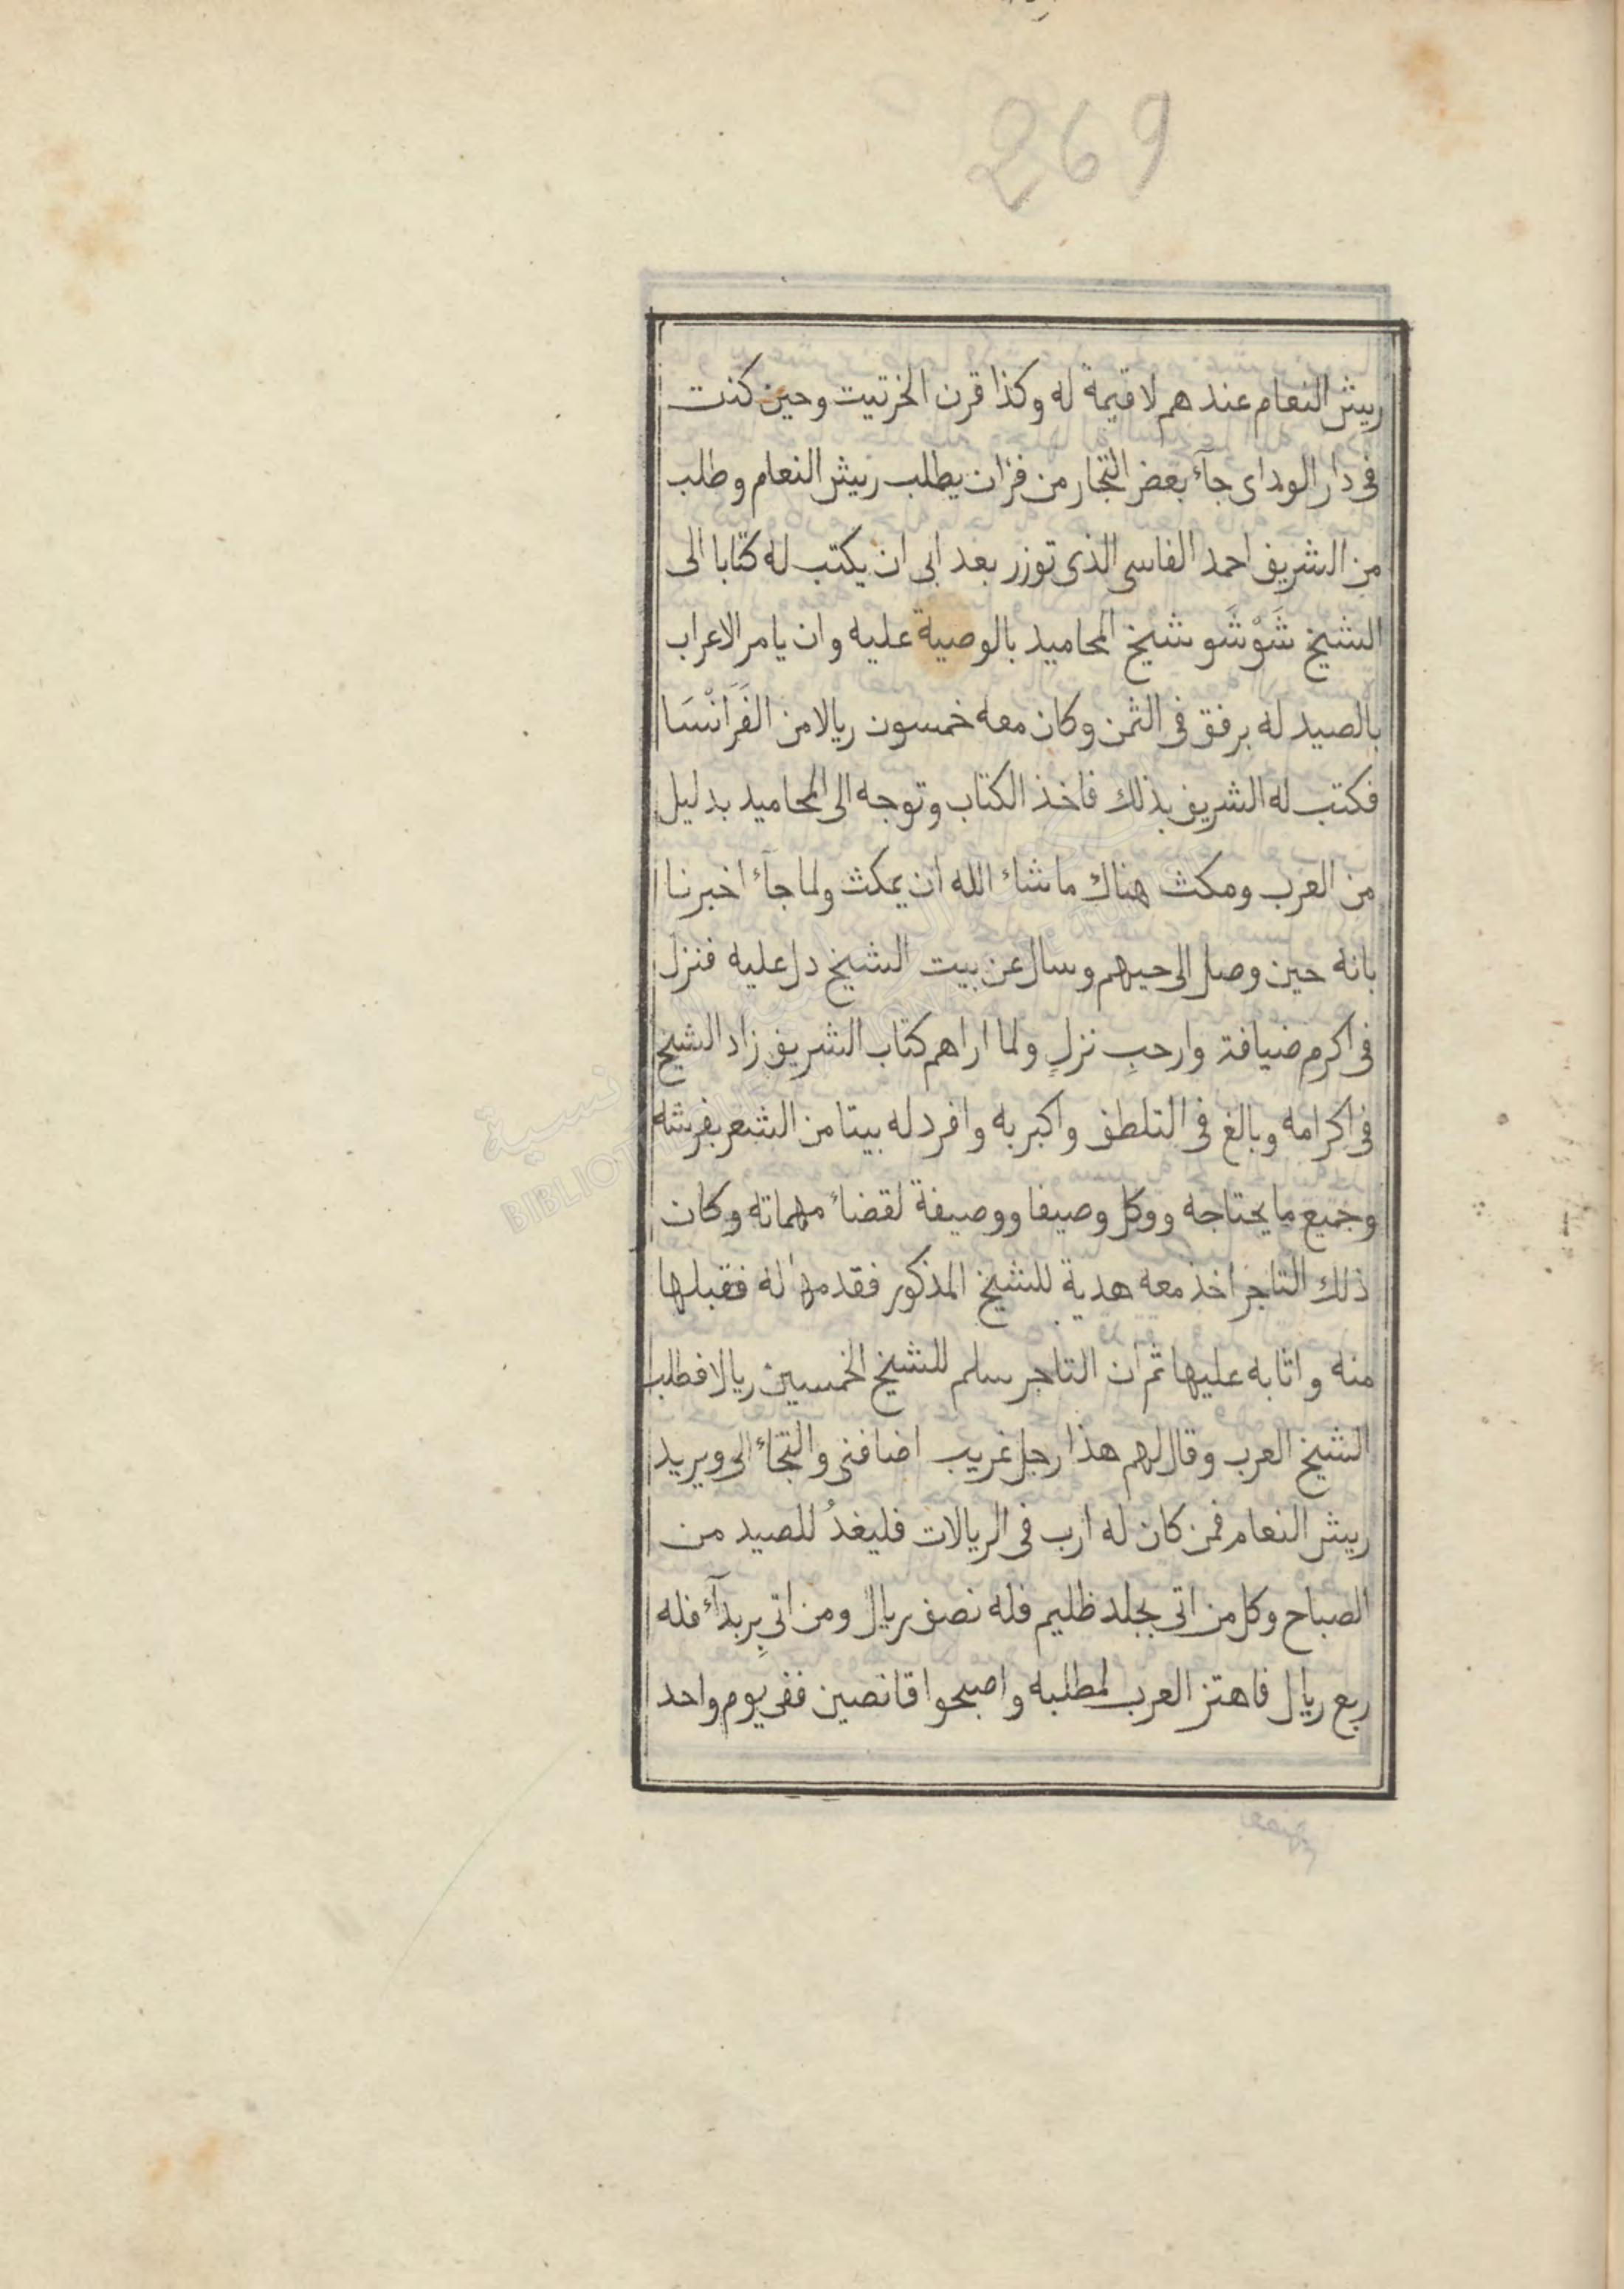 269
ريش النعام عندهم لا قيمة له وكذا قرن الخرتيت وحين كنت
فى دار الوداى جآء بعض التجار من فزان يطلب ريش النعام وطلب
من الشريف احمد الفاسى الذى توزر بعد ابى ان يكتب له كتابا الى
الشيخ شَوْشَو شيخ المحاميد بالوصية عليه وان يامر الاعراب
بالصيد له برفق فى الثمن وكان معه خمسون ريالا من الفَرَانْسَا
فكتب له الشريف بذلك فاخذ الكتاب وتوجه الى المحاميد بدليل
من العرب ومكث هناك ماشاء الله ان يمكث ولما جآء اخبرنا
بانه حين وصل الى حيهم وسال عن بيت الشيخ دل عليه فنزل
فى اكرم ضيافة وارحبِ نزلٍ ولما اراهم كتاب الشريف زاد الشيخ
فى اكرامه وبالغ فى التلطف واكبر به وافرد له بيتا من الشعر بفرشه
وجميع ما يحتاجه ووكل وصيفا ووصيفة لقضاء مهماته وكان
ذلك التاجر اخذ معه هدية للشيخ المذكور فقدمها له فقبلها
منه واثابه عليها ثم ان التاجر سلم للشيخ الخمسين ريالا فطلب
الشيخ العرب وقال لهم هذا رجل غريب اضافنى والتجاء الى ويريد
ريش النعام فمن كان له ارب فى الريالات فليغدُ للصيد من
الصباح وكل من اتى بجلد ظليم فله نصف ريال ومن اتى بِربدآء فله
ربع ريال فاهتز العرب لمطلبه واصبحوا قانصين ففى يوم واحد
BIBLIOTHEQUE NATIONALE